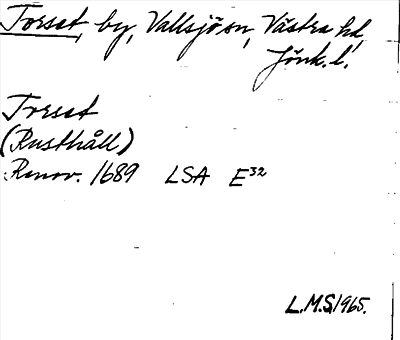 Torset, by, Vallsjö sn, Västra hd,
Jönk. l.
Torset
(Rusthåll)
Renov. 1689 LSA E32
L.M.S. 1965.